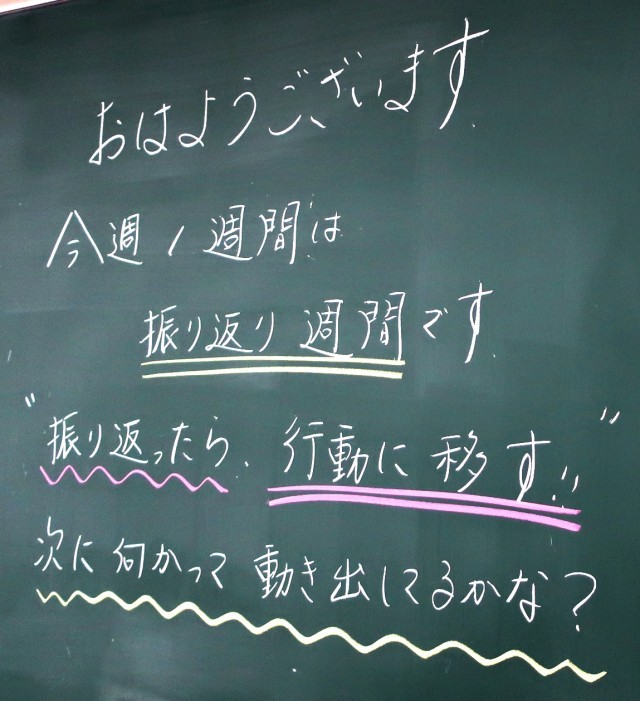 おはようございます
今週1週間は
振り返り週間です
"振り返ったら、行動に移す!!"
次に向かって動き出してるかな?